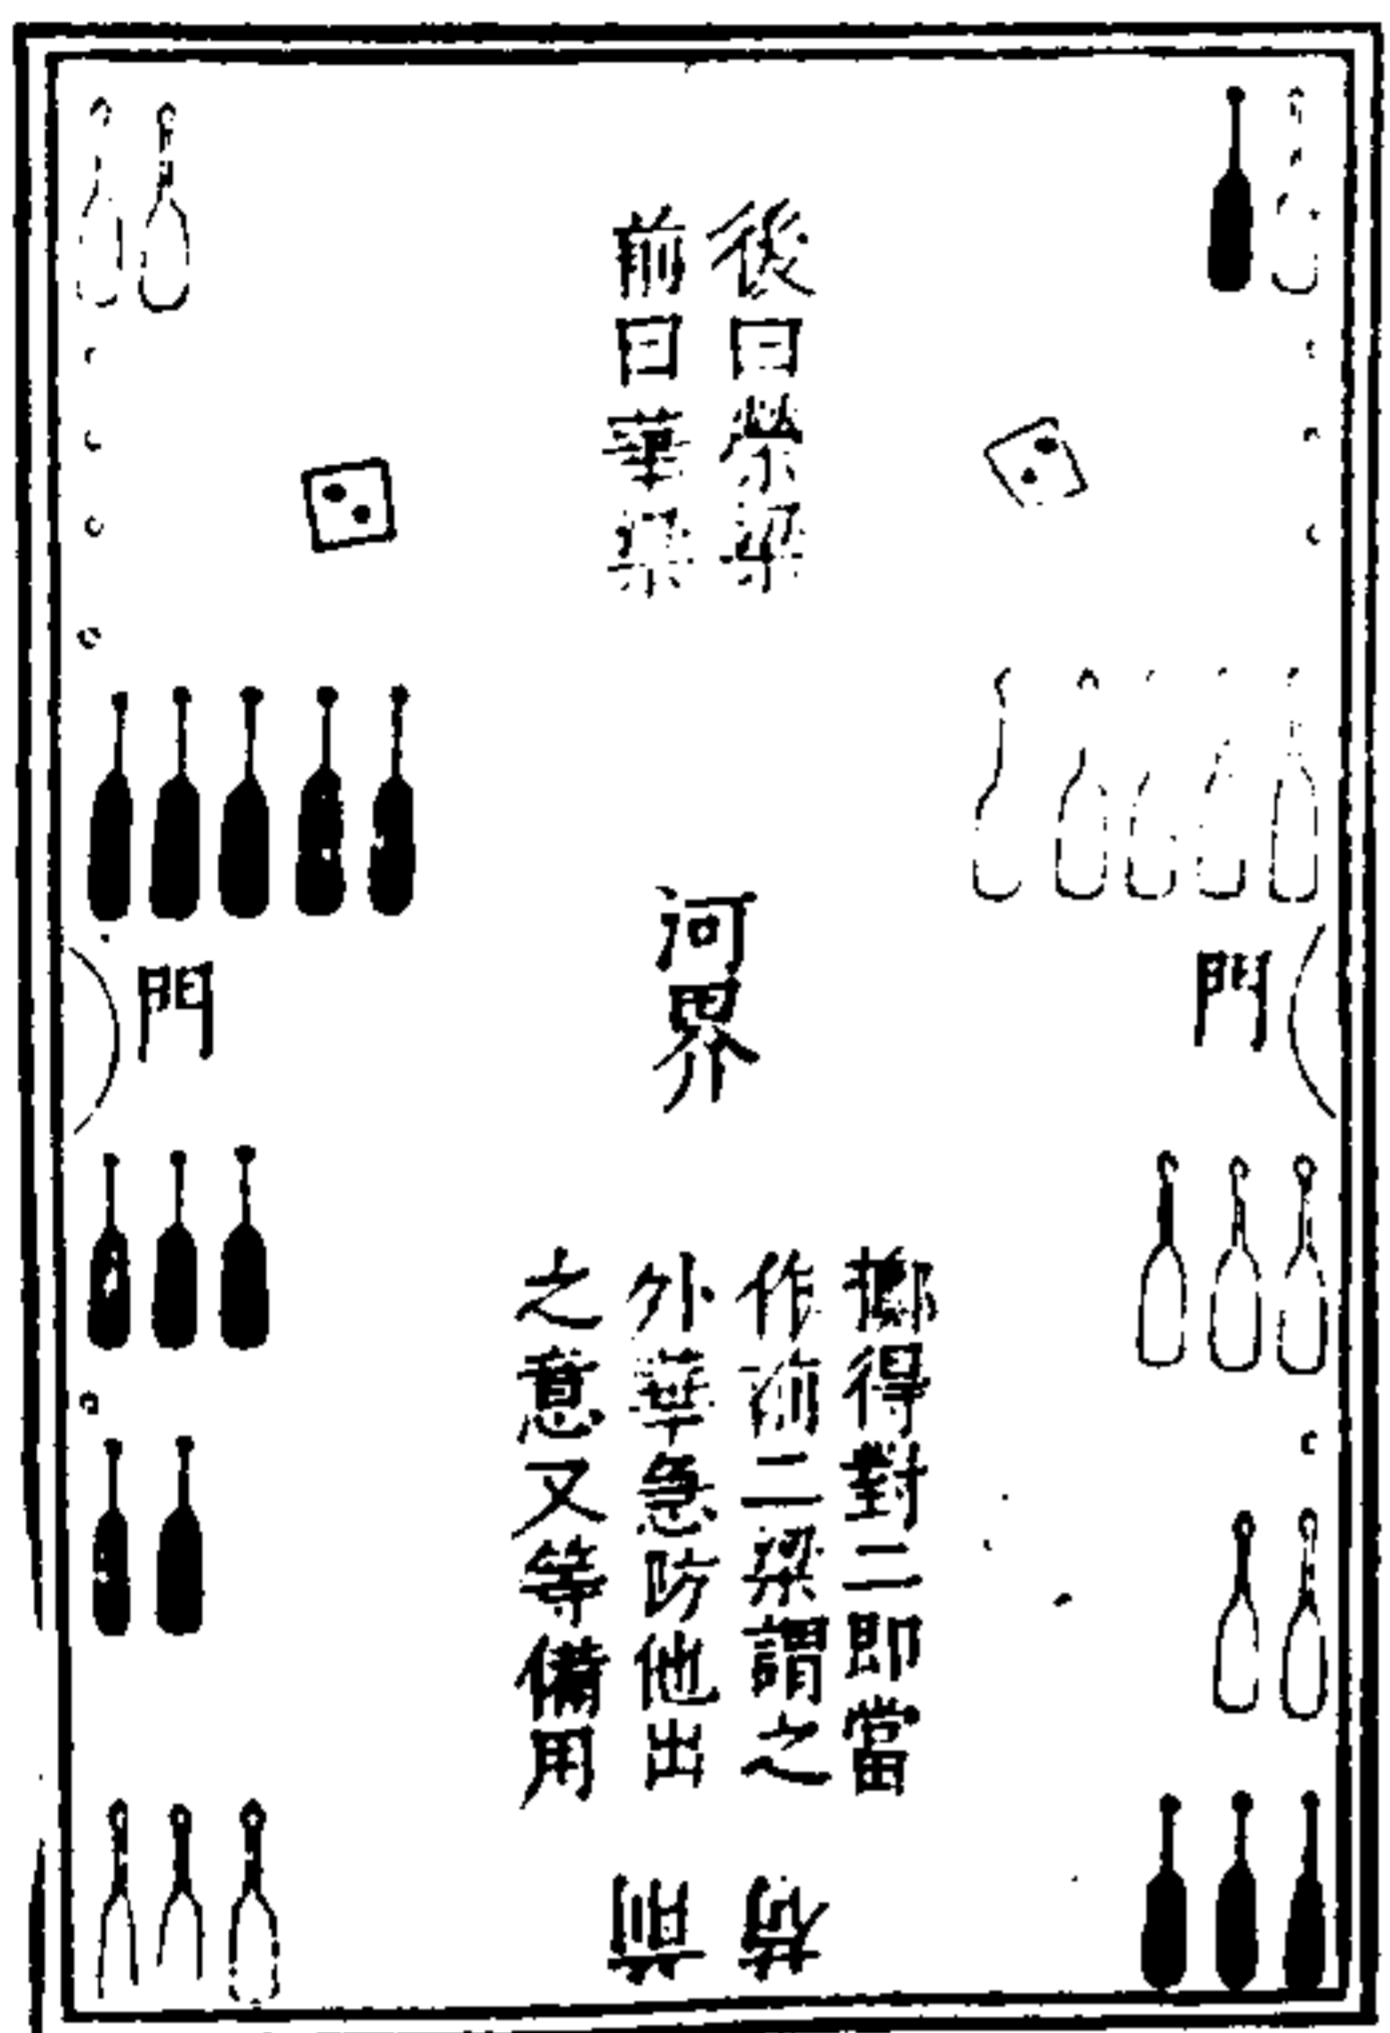 後曰榮梁
前曰華梁
門
河界
門
擲得對二即當
作前二梁謂之
外華急防他出
之意又等備用